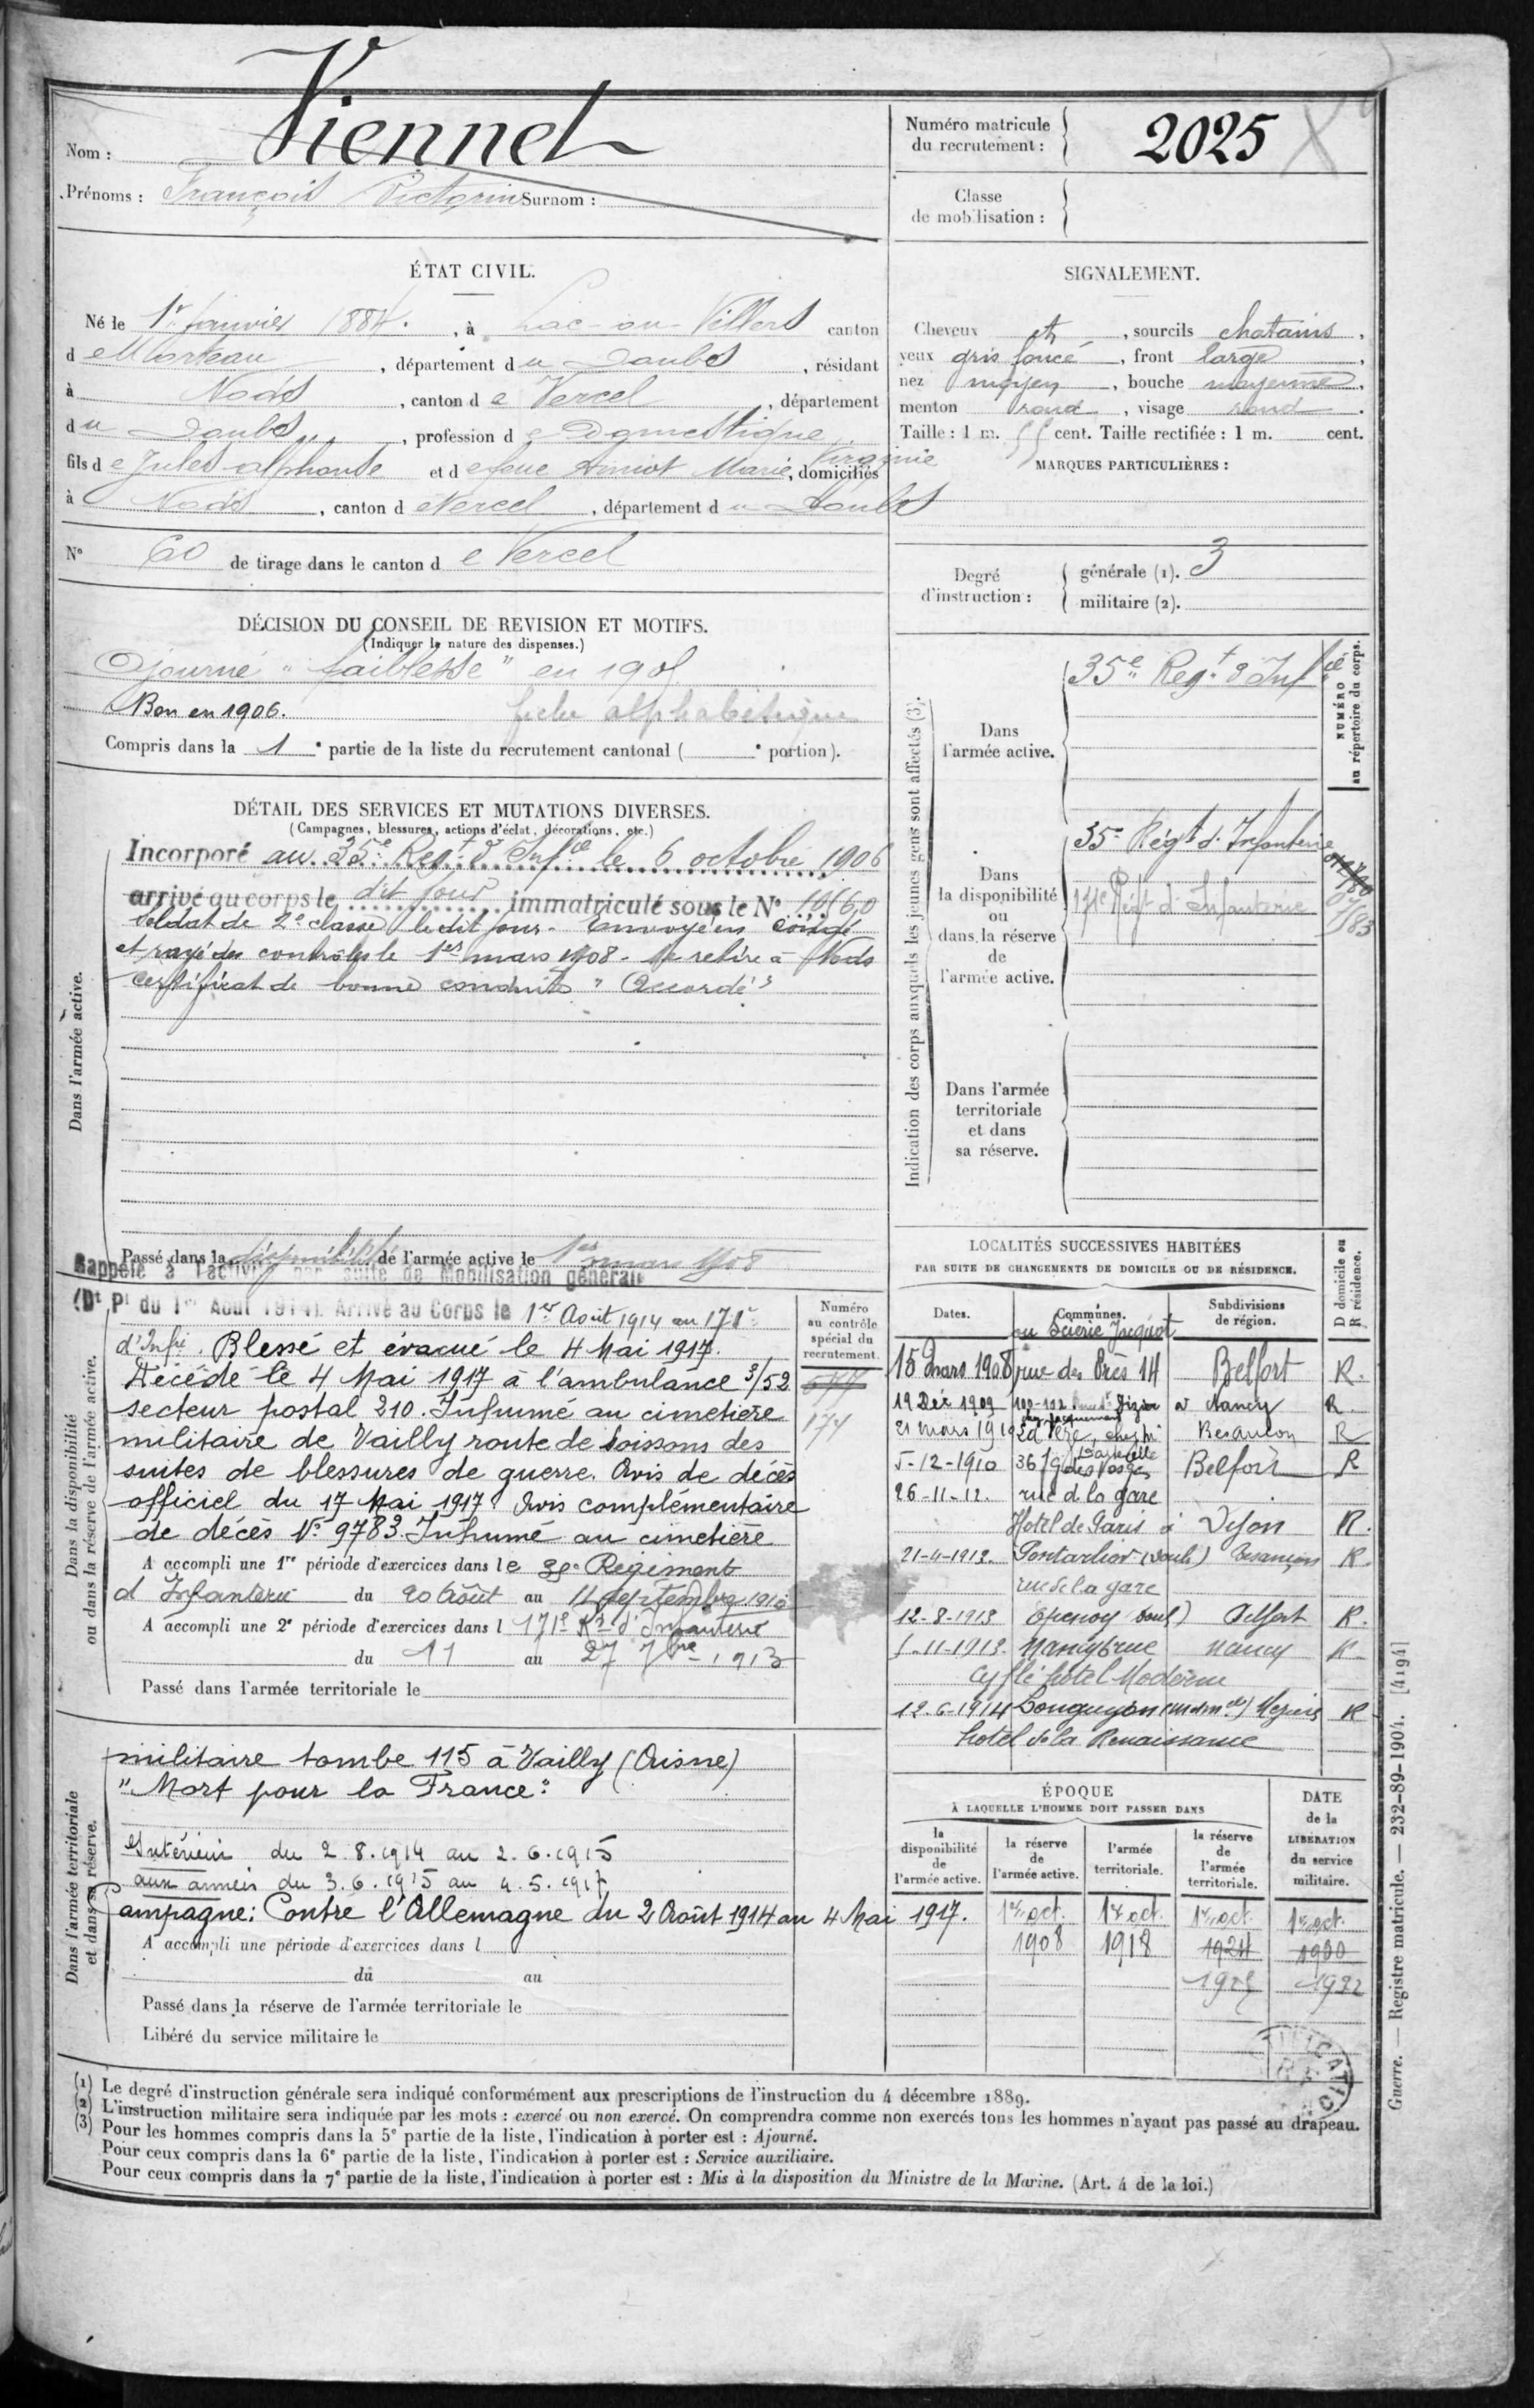 Nom : Viennet
Prénoms : François Victorin Surnom :
Numéro matricule du recrutement : 2025
Classe de mobilisation :
ÉTAT CIVIL.
Né le 1er Janvier 1884. , à Lac-ou-Villers canton
de Morteau , département du Doubs , résidant
à Nods , canton de Vercel , département
du Doubs , profession de Domestique
fils de Jules alphonse et de feue Amiot Marie Virginie, domiciliés
à Nods , canton de Vercel , département du Doubs
N° 60 de tirage dans le canton de Vercel
SIGNALEMENT.
Cheveux et , sourcils chatains ,
yeux gris foncé , front large ,
nez moyen , bouche moyenne ,
menton rond , visage rond .
Taille : 1 m. 55 cent. Taille rectifiée : 1 m. cent.
MARQUES PARTICULIÈRES :
Degré d'instruction : générale (1). 3
militaire (2).
DÉCISION DU CONSEIL DE REVISION ET MOTIFS.
(Indiquer la nature des dispenses.)
Ajourné "faiblesse" en 1905
Bon en 1906. fiche alphabétique
Compris dans la 1e partie de la liste du recrutement cantonal ( e portion).
DÉTAIL DES SERVICES ET MUTATIONS DIVERSES.
(Campagnes, blessures, actions d'éclat, décorations, etc.)
Dans l'armée active.
Incorporé au 35e Regt d'Infie le 6 octobre 1906
arrivé au corps le dit jour immatriculé sous le N°
Soldat de 2e classe le dit jour. Envoyé en congé
et rayé des contrôles le 1er mars 1908. Se retire à Nods
Certificat de bonne conduite "Accordé"
Passé dans la disponibilité de l'armée active le 1er mars 1908
Indication des corps auxquels les jeunes gens sont affectés (3).
NUMÉRO au répertoire du corps.
Dans l'armée active.
35e Regt d'Infie
Dans la disponibilité ou dans la réserve de l'armée active.
35e Régt d'Infanterie
171e Régt d'Infanterie
Dans l'armée territoriale et dans sa réserve.
Dans la disponibilité ou dans la réserve de l'armée active.
Rappelé à l'activité par suite de Mobilisation générale
(Dt Pt du 1er Août 1914). Arrivé au Corps le 1er Août 1914 au 171e
d'Infie. Blessé et évacué le 4 Mai 1917.
Décédé le 4 Mai 1917 à l'ambulance 3/52
secteur postal 210. Inhumé au cimetière
militaire de Vailly route de Soissons des
suites de blessures de guerre. Avis de décès
officiel du 17 Mai 1917. Avis complémentaire
de décès N° 9783. Inhumé au cimetière
A accompli une 1re période d'exercices dans le 35e Régiment
d'Infanterie du 20 Août au 11 septembre 1910
A accompli une 2e période d'exercices dans l 171e Rt d'Infanterie
du 11 au 27 7bre 1913
Passé dans l'armée territoriale le
Numéro au contrôle spécial du recrutement.
174
Dans l'armée territoriale et dans sa réserve.
militaire tombe 115 à Vailly (Aisne)
"Mort pour la France"
Intérieur du 2.8.1914 au 2.6.1915
aux armées du 3.6.1915 au 4.5.1917
Campagne: Contre l'Allemagne du 2 Août 1914 au 4 Mai 1917.
A accompli une période d'exercices dans l
du au
Passé dans la réserve de l'armée territoriale le
Libéré du service militaire le
LOCALITÉS SUCCESSIVES HABITÉES
PAR SUITE DE CHANGEMENTS DE DOMICILE OU DE RÉSIDENCE.
Dates. Communes. Subdivisions de région. D domicile ou R résidence.
Scierie Jacquot
15 Mars 1908 rue des Près 14 Belfort R.
19 Déc 1909 Nancy R.
21 mars 1910 Besançon R
5-12-1910 36 des Vosges Belfort R
26-11-12. rue de la gare
Hotel de Paris à Dijon R.
21-4-1913. Pontarlier (Doubs) Besançon R.
rue de la gare
12-8-1913 Epenoy Doubs) Belfort R.
1-11-1913. Nancy 6 rue Nancy R
Cyfflé hôtel Moderne
12-6-1914 Longuyon R
hotel de la Renaissance
ÉPOQUE
À LAQUELLE L'HOMME DOIT PASSER DANS
la disponibilité de l'armée active. la réserve de l'armée active. l'armée territoriale. la réserve de l'armée territoriale. DATE de la LIBÉRATION du service militaire.
1er oct. 1er oct. 1er oct. 1er oct.
1908 1918 1924 1930
1925 1932
(1) Le degré d'instruction générale sera indiqué conformément aux prescriptions de l'instruction du 4 décembre 1889.
(2) L'instruction militaire sera indiquée par les mots : exercé ou non exercé. On comprendra comme non exercés tous les hommes n'ayant pas passé au drapeau.
(3) Pour les hommes compris dans la 5e partie de la liste, l'indication à porter est : Ajourné.
Pour ceux compris dans la 6e partie de la liste, l'indication à porter est : Service auxiliaire.
Pour ceux compris dans la 7e partie de la liste, l'indication à porter est : Mis à la disposition du Ministre de la Marine. (Art. 4 de la loi.)
Guerre. — Registre matricule. — 232-89-1904. [4194]